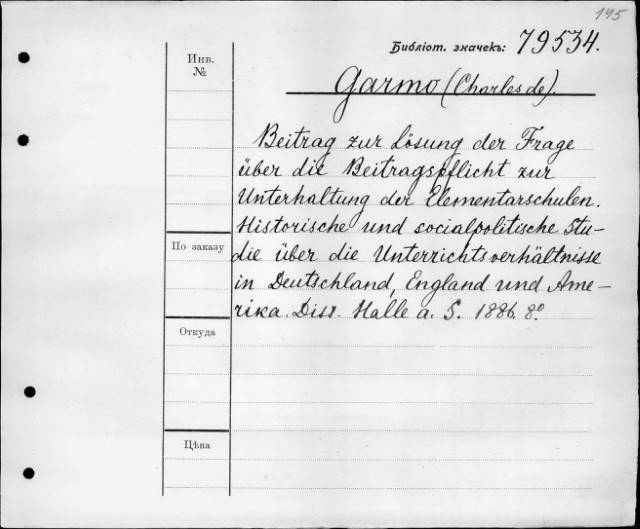 145
Библіот. значекъ: 79534.
Инв.
№
Garmo (Charles de).
Beitrag zur Lösung der Frage
über die Beitragspflicht zur
Unterhaltung der Elementarschulen.
Historische und socialpolitische Stu-
die über die Unterrichtsverhältnisse
in Deutschland, England und Ame-
rika. Diss. Halle a. S. 1886. 8º
По заказу
Откуда
Цѣна